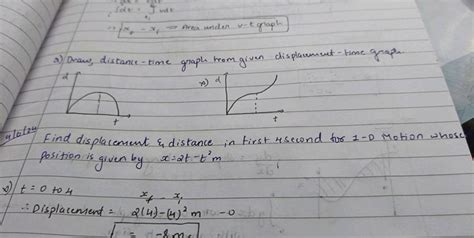 ∫dx = ∫vdt
x₂ - x₁ ⇒ Area under v-t graph
Q) Draw, distance-time graph from given displacement-time graph.
d
t
d
t
Find displacement & distance in first 4 second for 1-D Motion whose
position is given by x=2t-t² m
t = 0 to 4
xf - xi
∴ Displacement = 2(4)-(4)² m - 0
= -8m